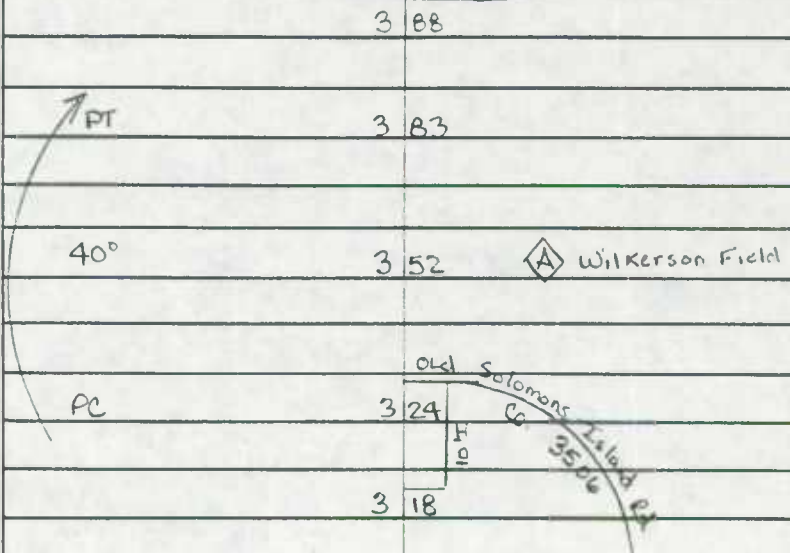 3 88
PT
3 83
40°
3 52
A Wilkerson Field
Old Solomons Island Rd
PC
3 24
Co.
3506
3 18